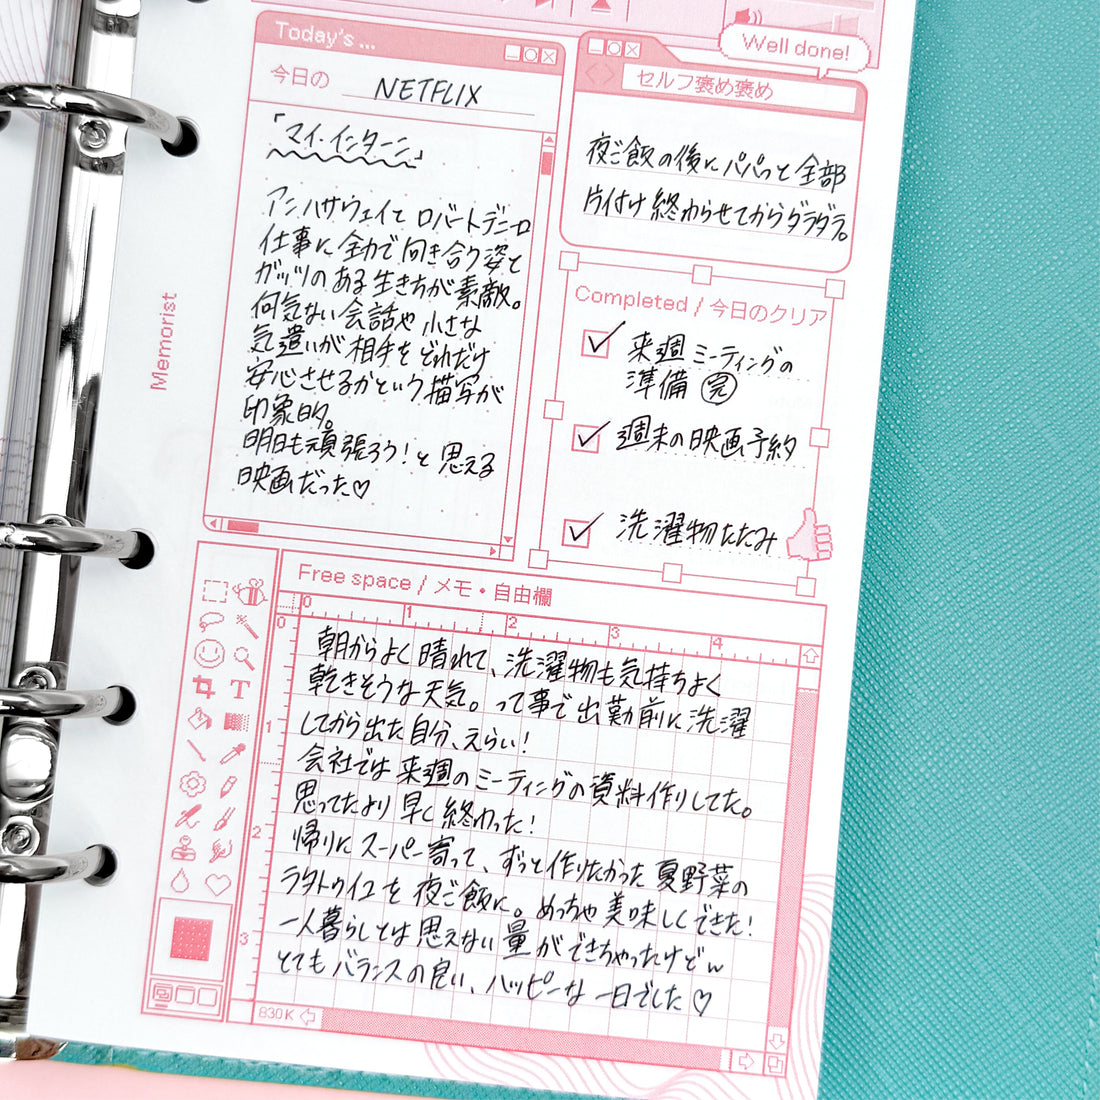 Today's ...
今日の NETFLIX
「マイ・インターン」
アンハサウェイと ロバートデニーロ
仕事に全力で向き合う姿と
ガッツのある生き方が素敵。
何気ない会話や小さな
気遣いが相手をどれだけ
安心させるかという描写が
印象的。
明日も頑張ろう！と思える
映画だった♡
Well done!
セルフ褒め褒め
夜ご飯の後にパパっと全部
片付け終わらせてからダラダラ。
Completed / 今日のクリア
来週ミーティングの
準備 完
週末の映画予約
洗濯物たたみ
Memorist
Free space / メモ・自由欄
0 1 2 3 4
0
1
2
3
T
朝からよく晴れて、洗濯物も気持ちよく
乾きそうな天気。って事で出勤前に洗濯
してから出た自分、えらい！
会社では来週のミーティングの資料作りしてた。
思ってたより早く終わった！
帰りにスーパー寄って、ずっと作りたかった夏野菜の
ラタトゥイユを夜ご飯に。めっちゃ美味しくできた！
一人暮らしとは思えない量ができちゃったけどw
とてもバランスの良い、ハッピーな一日でした♡
830K